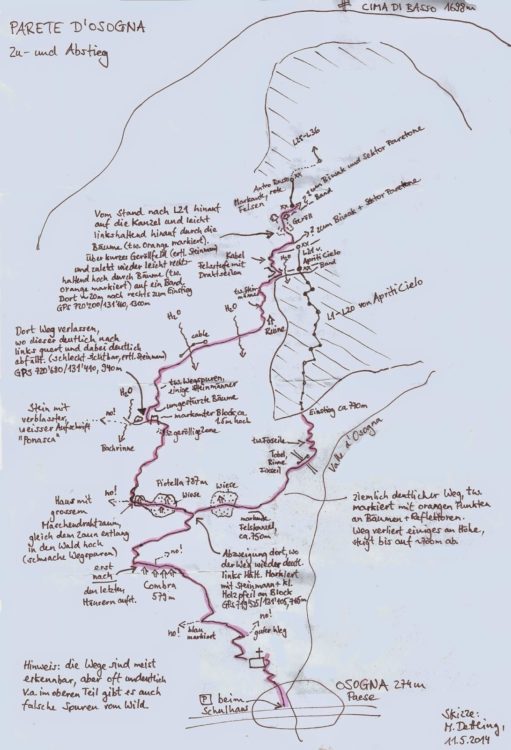 CIMA DI BASSO 1698m
PARETE D'OSOGNA
Zu- und Abstieg
L25-L36
Markante, rote
Felsen
zum Biwak und Sektor Pouretone
Band
Geröll
Vom Stand nach L21 hinauf
auf die Kanzel und leicht
linkshaltend hinauf durch die
Bäume (tw. Orange markiert).
über kurzes Geröllfeld (evtl. Steinmann)
und zuletzt wieder leicht rechts-
haltend hoch durch Bäume (tw.
orange markiert) auf ein Band.
Dort ~20m nach rechts zum Einstieg
GPS
zum Biwak + Sektor Pouretone
Kabel
Felsstufe mit
Drahtseilen
H2O
L21 v.
Apriti Cielo
Band
tw. Stein-
männer
H2O
H2O
Rinne
L1-L20 von Apriti Cielo
cable
Dort Weg verlassen,
wo dieser deutlich nach
links quert und dabei deutlich
abfällt. (schlecht sichtbar, evtl. Steinmann)
GPS 720'680/131'410, 940m
tw. Wegspuren,
einige Steinmänner
umgestürzte Bäume
markanter Block, ca.
1.5m hoch
H2O
Stein mit
verblasster,
weisser Aufschrift
"Ponasca"
no!
Geröllige Zone
Bachrinne
Einsteig ca. 790m
tw. Fixseile
Tobel,
Rinne
Fixseil
Valle d'Osogna
Pistella 787m
Wiese
Wiese
Haus mit
grossem
Maschendrahtzaun,
gleich dem Zaun entlang
in den Wald hoch
(schwache Wegspuren)
no!
markante
Felskanzel,
ca. 750m
ziemlich deutlicher Weg, tw.
markiert mit orangen Punkten
an Bäumen + Reflektoren.
Weg verliert einiges an Höhe,
steigt bis auf ~700m ab.
erst
nach
den letzten
Häusern aufst.
no!
Combra
579m
Abzweigung dort, wo
der Weg wieder deutl.
links hält. Markiert
mit Steinmann + kl.
Holzpfeil am Block
GPS
no!
blau
markiert
no!
guter Weg
Hinweis: die Wege sind meist
erkennbar, aber oft undeutlich
V.a. im oberen Teil gibt es auch
falsche Spuren vom Wild.
P beim
Schulhaus
OSOGNA 274m
Paese
Skizze:
M. Dettling,
11.5.2014